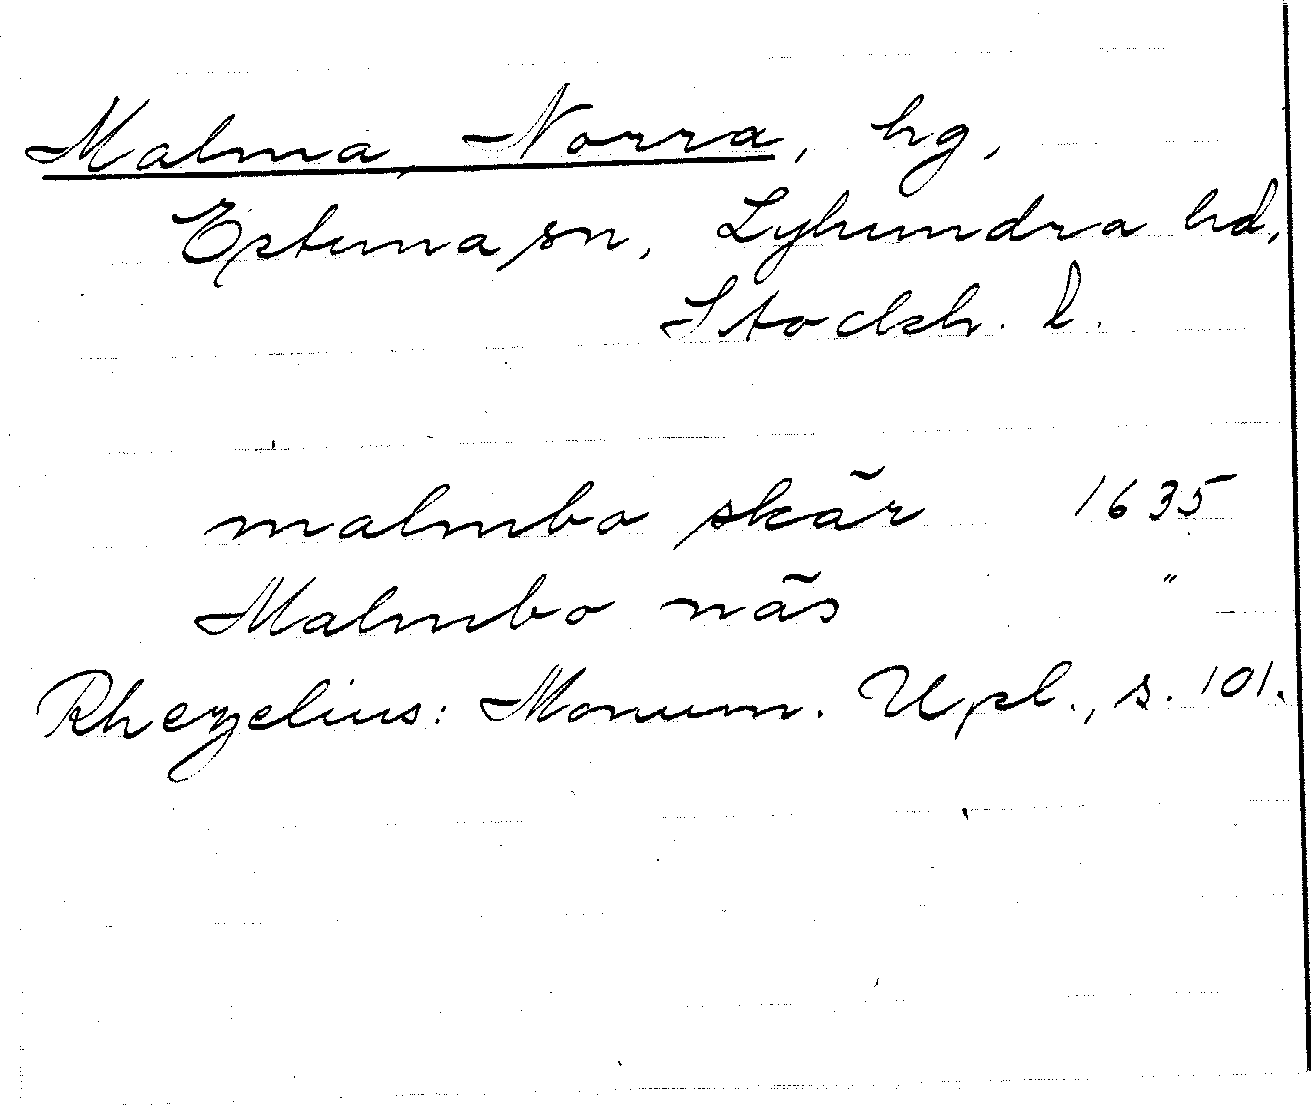 Malma, Norra, hg,
Estuna sn, Lyhundra hd,
Stockh. l.
malmbo skär 1635
Malmbo näs "
Rhezelius: Monum. Upl., s. 101.